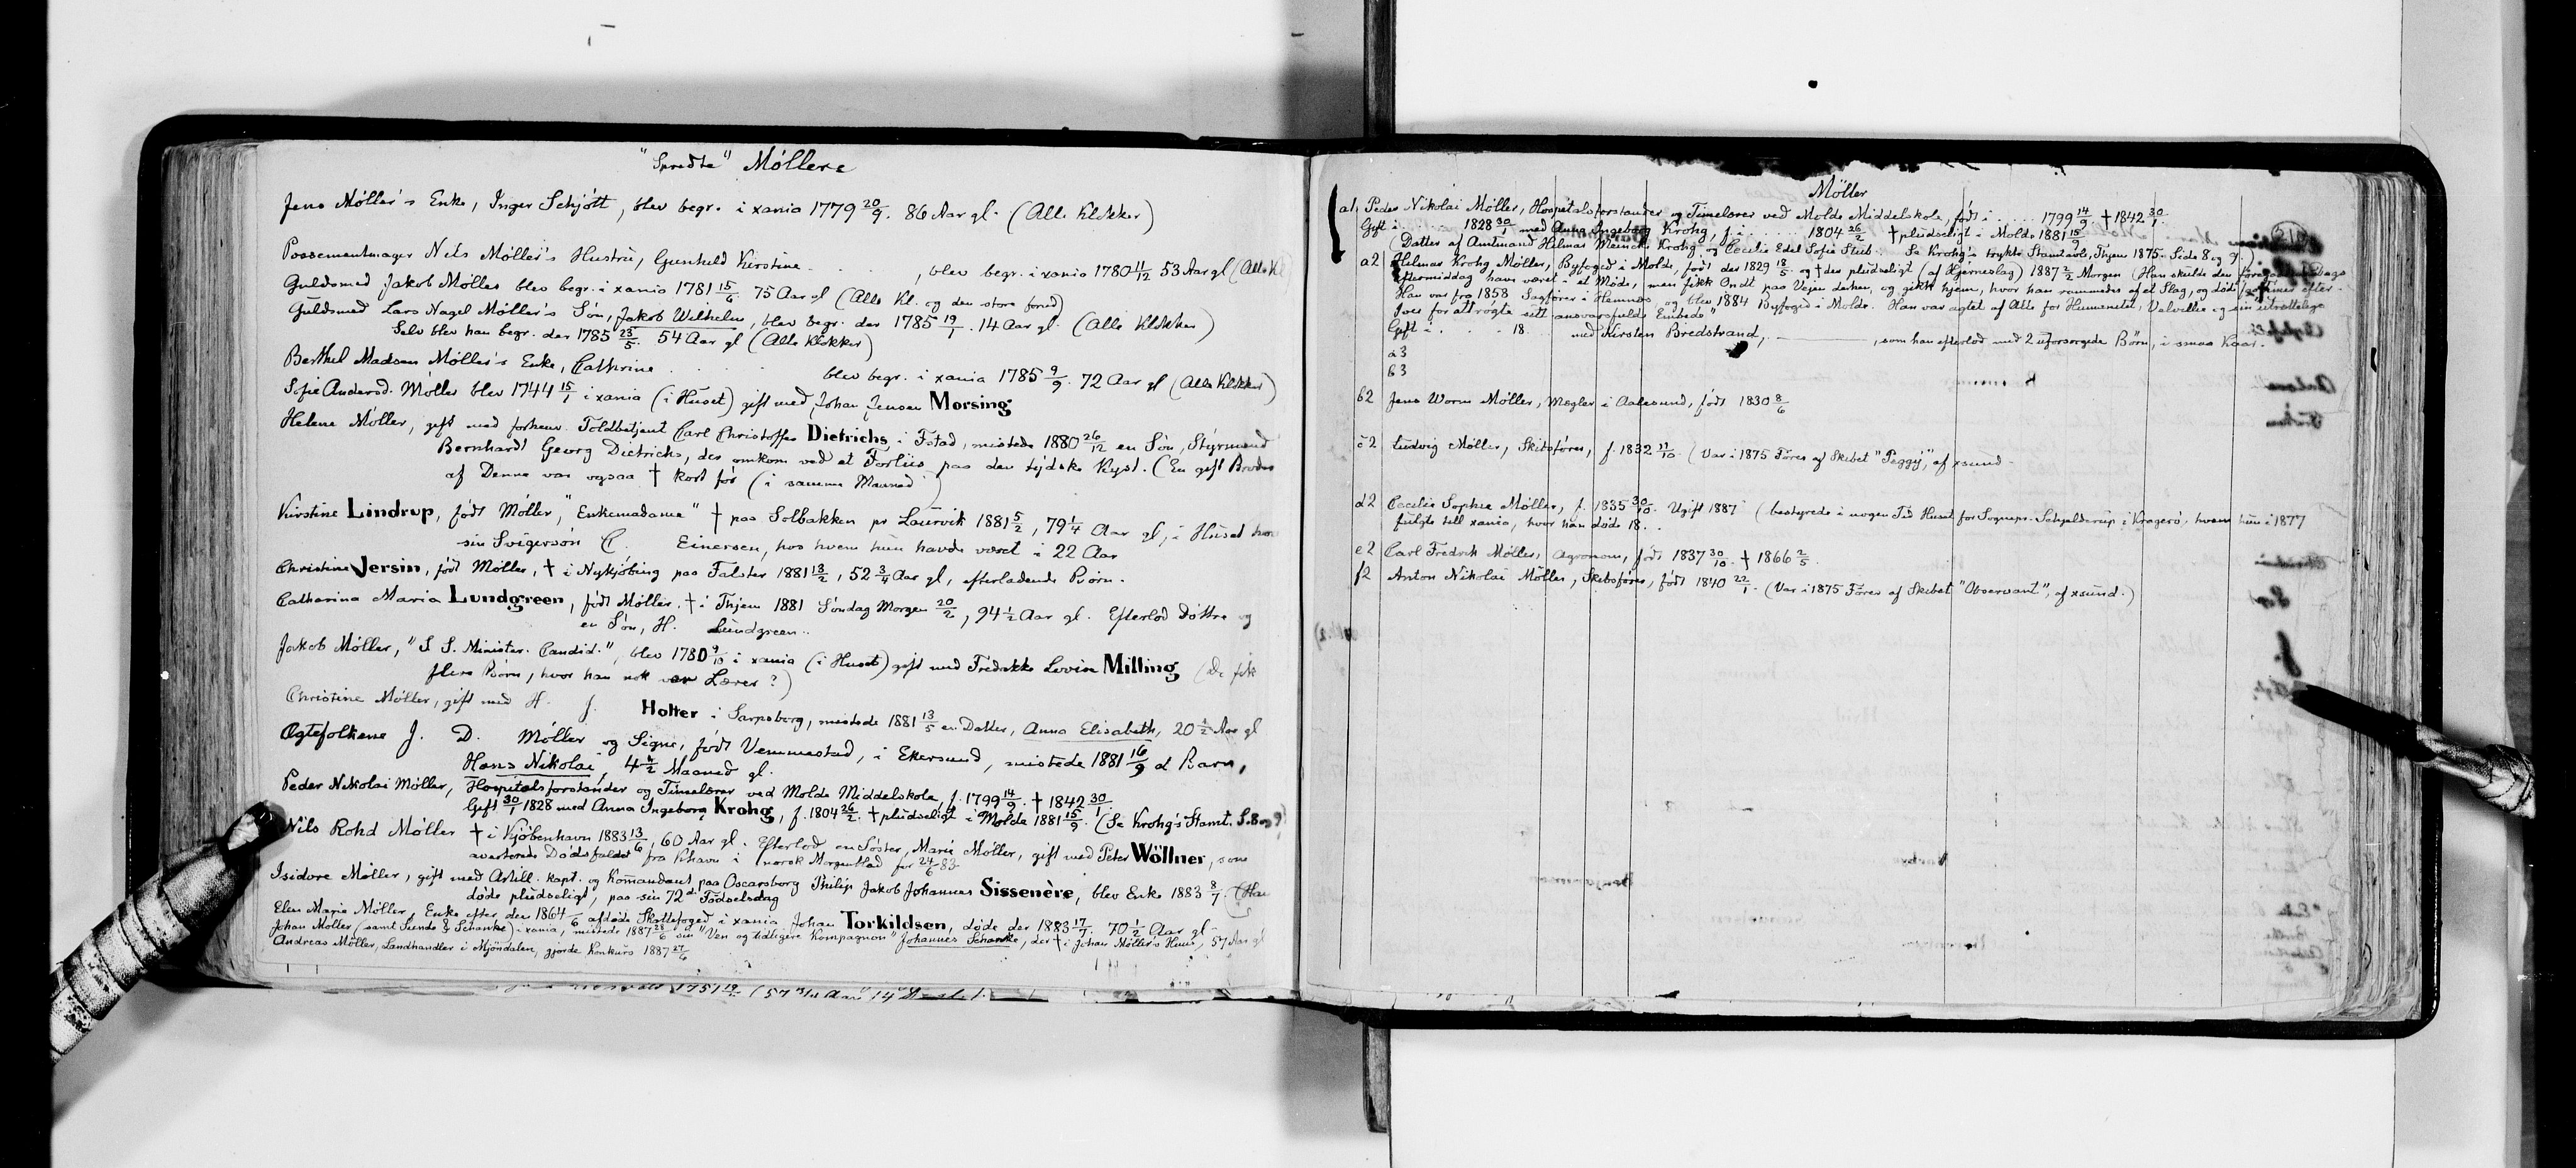 "Spredte" Møllere
Jens Møller's Enke, Inger Schjøtt, blev begr. i xania 1779 20/9. 86 Aar gl. (Alle Klokker)
Possementmager Nils Møller's Hustru, Gunhild Kirstine . . . , blev begr. i xania 1780 11/12 53 Aar gl (Alle Kl
Guldsmed Jakob Møller blev begr. i xania 1781 15/6 75 Aar gl (Alle Kl. og den store forud)
Guldsmed Lars Nagel Møller's Søn, Jakob Wilhelm, blev begr. der 1785 19/1. 14 Aar gl. (Alle Klokker)
Selv blev han begr. der 1785 25/5. 54 Aar gl (Alle Klokker)
Berthel Madsen Møller's Enke, Cathrine . . . blev begr. i xania 1785 9/9. 72 Aar gl (Alle Klokker)
Sofie Andersd. Møller blev 1744 15/1 i xania (i Huset) gift med Johan Jensen Morsing
Helene Møller, gift med forhenv. Toldbetjent Carl Christoffer Dietrichs i Fstad, mistede 1880 26/12 en Søn, Styrmand
Bernhard Georg Dietrichs, der omkom ved et Forliis paa den tydske Kyst. (En gift Broder
af Denne var ogsaa † kort før (i samme Maaned)
Kirstine Lindrup, født Møller, "Enkemadame" † paa Solbakken pr Laurvik 1881 5/2, 79 1/4 Aar gl, i Huset hos
sin Svigersøn C. Einersen, hos hvem hun havde været i 22 Aar
Christine Jersin, født Møller, † i Nykjøbing paa Falster 1881 13/2, 52 3/4 Aar gl, efterladende Børn.
Catharina Maria Lundgreen, født Møller. † i Thjem 1881 Søndag Morgen 20/2, 94 1/2 Aar gl. Efterlod Døttre og
en Søn, H. Lundgreen..
Jakob Møller, "S. S. Minister. Candid.", blev 1780 9/10 i xania (i Huset) gift med Fredrikke Lovise Milling (De fik
flere Børn, hvor han nok var Lærer?)
Christine Møller, gift med H. J. Holter i Sarpsborg, mistede 1881 13/5 en Datter, Anna Elisabeth, 20 1/2 Aar gl
Ægtefolkene J. D. Møller og Signe, født Vemmestad, i Ekersund, mistede 1881 16/9 et Barn,
Hans Nikolai, 4 1/2 Maaned gl.
Peder Nikolai Møller, Hospitalsforstander og Timelærer ved Molde Middelskole, f. 1799 14/9. † 1842 30/1.
Gift 30/1 1828 med Anna Ingeborg Krohg, f. 1804 26/2. † pludseligt i Molde 1881 15/9. (Se Krohg's Stamt. S. 8 og 9)
Nils Rohd Møller † i Kjøbenhavn 1883 13/6, 60 Aar gl. Efterlod en Søster, Marie Møller, gift med Peter Wöllner, som
averterede Dødsfaldet fra Khavn i norsk Morgenblad for 24/6 83
Isidore Møller, gift med Artill. kapt. og Kommandant paa Oscarsborg Philip Jakob Johannes Sissenère, blev Enke 1883 8/7. (Han
døde pludseligt, paa sin 72de Fødselsdag
Elen Marie Møller, Enke efter den 1864 /6 afdøde Skattefoged i xania Johan Torkildsen, døde der 1883 17/7. 70 1/2 Aar gl
Johan Møller (samt Sunde & Schanke) i xania, mistede 1887 28/6 sin "Ven og tidligere Kompagnon" Johannes Schanke, der † i Johan Møller's Huus, 57 Aar gl
Andreas Møller, Landhandler i Mjøndalen, gjorde Konkurs 1887 27/6
Møller
a1 Peder Nikolai Møller, Hospitalsforstander og Timelærer ved Molde Middelskole, født i . . . 1799 14/9. † 1842 30/1.
Gift i . . . 1828 30/1 med Anna Ingeborg Krohg, f. i . . . 1804 26/2 † pludseligt i Molde 1881 15/9
(Datter af Amtmand Hilmar Meincke Krohg og Cecilie Edel Sofie Stub. Se Krohg's trykte Stamtavle, Thjem 1875. Side 8 og 9.)
a2 Hilmar Krohg Møller, Byfoged i Molde, født der 1829 18/5 og † der pludseligt (af Hjerneslag) 1887 2/2 Morgen (Han skulde den foregaaende Dags
Eftermiddag have været i et Møde, men fikk Ondt paa Vejen derhen, og gikk hjem, hvor han rammedes af et Slag, og døde faa Timer efter.
Han var fra 1858 Sagfører i Hemnæs, og blev 1884 Byfoged i Molde. Han var agtet af Alle for Humanitet, Velvillie og sin utrættelige
Iver for att røgte sitt ansvarsfulde Embede"
Gift i . . . 18 . . med Kirsten Bredstrand, , som han efterlod med 2 uforsørgede Børn, i smaa Kaar.
a3
b3
b2 Jens Worm Møller, Mægler i Aalesund, født 1830 8/6
c2 Ludvig Møller, Skibsfører, f. 1832 11/10. (Var i 1875 Fører af Skibet "Peggy", af xsund.
d2 Cecilie Sophie Møller, f. 1835 30/10. Ugift 1887 (bestyrede i nogen Tid Huset for Sognepr. Schjelderup i Kragerø, hvem hun i 1877
fulgte till xania, hvor han døde 18 .
e2 Carl Fredrik Møller, Agronom, født 1837 30/10. † 1866 2/5.
f2 Anton Nikolai Møller, Skibsfører, født 1840 22/1. (Var i 1875 Fører af Skibet "Observant", af xsund.)